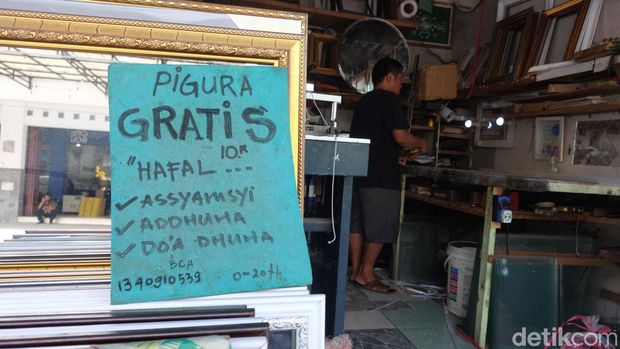 PIGURA
GRATIS
10.R
"HAFAL ....
✓ ASSYAMSYI
✓ ADDHUHA
✓ DO'A DHUHA
BCA
1340910539
0-20th.
detikcom